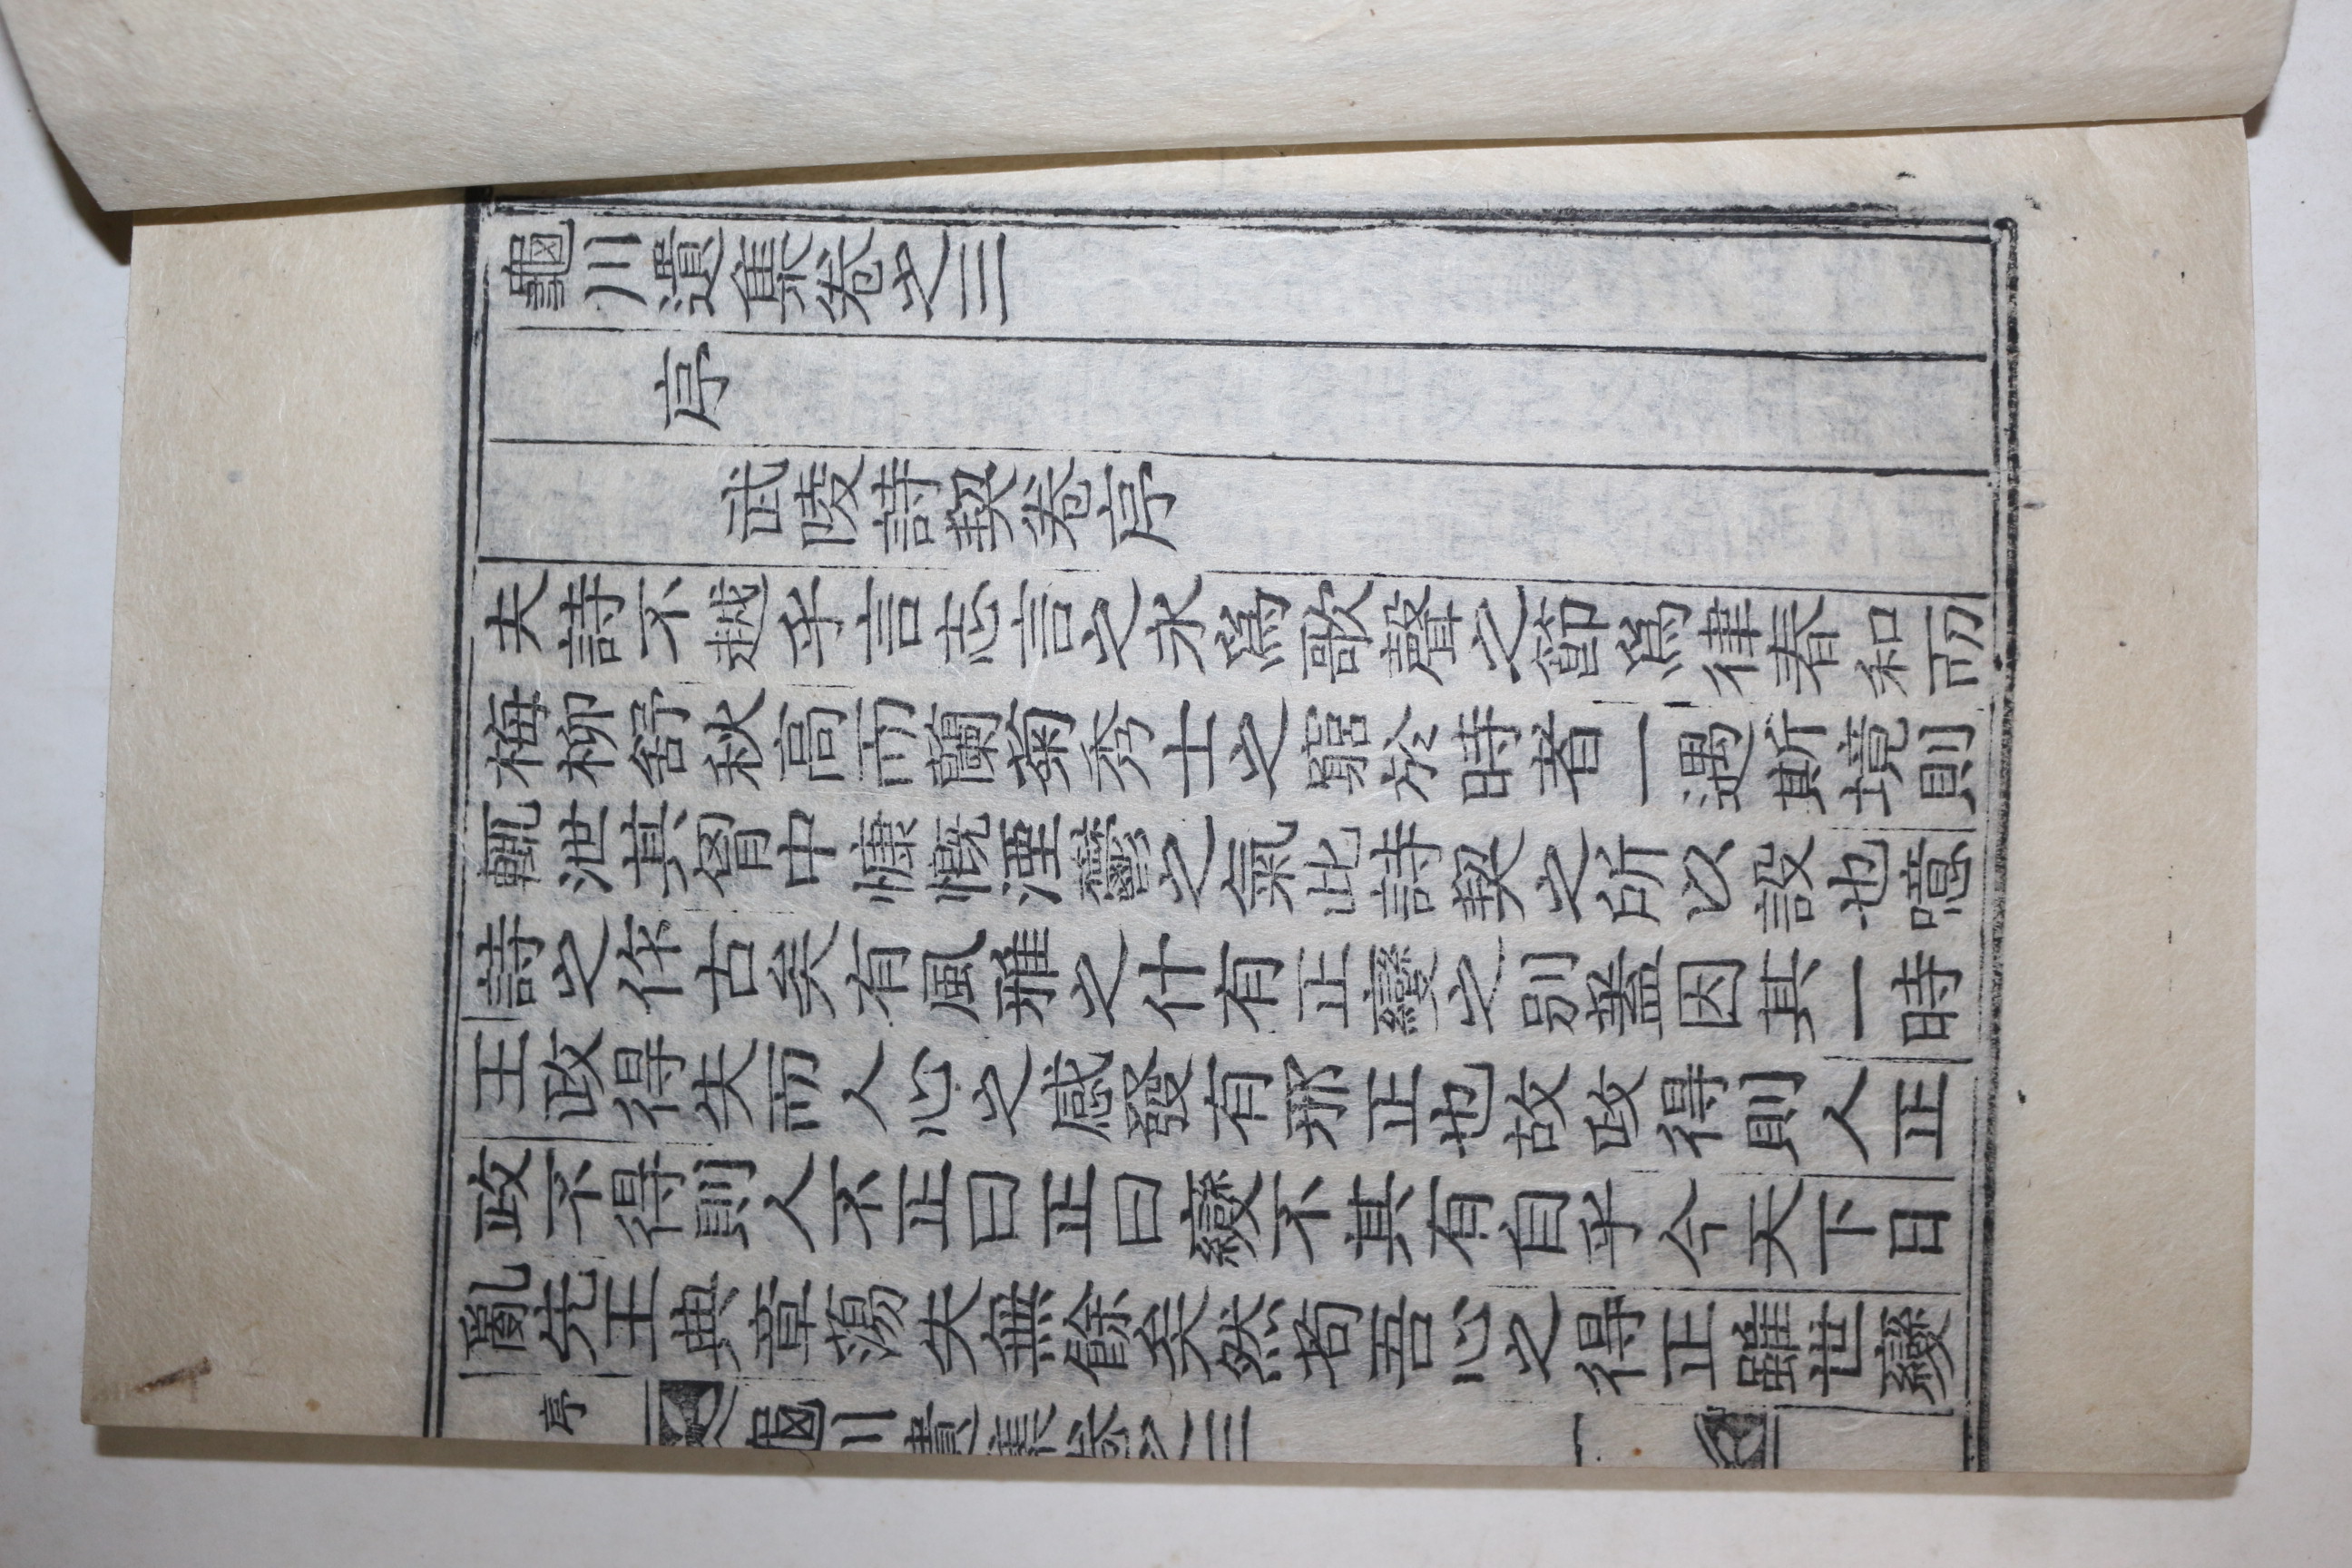 龜川遺集卷之三
序
武陵詩契卷序
夫詩不越乎言志言之永爲歌聲之節爲律春和而
梅柳舒秋高而蘭菊秀士之窮於時者一遇斯境則
輒泄其胷中慷慨湮鬱之氣此詩契之所以設也噫
詩之作古矣有風雅之什有正變之別蓋因其一時
王政得失而人心之感發有邪正也故政得則人正
政不得則人不正曰正曰變不其有自乎今天下日
亂先王典章蕩失無餘矣然苟吾心之得正雖世變
序 龜川遺集卷之三 一